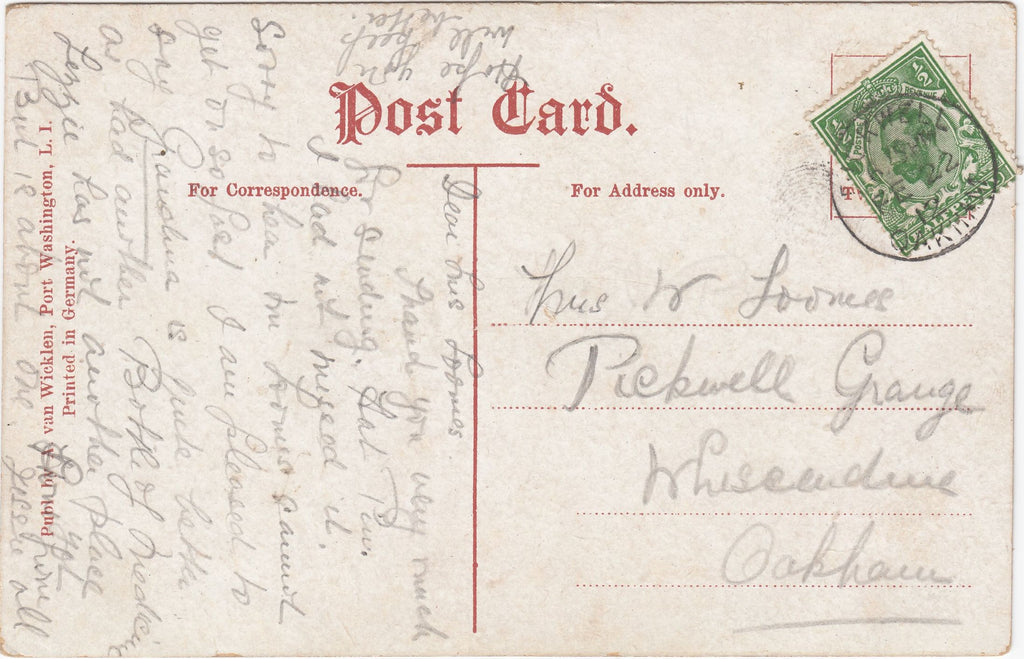 Post Card.
For Correspondence.
For Address only.
Dear Mrs Loomes
Thank you very much
for sending. that P.W.
I had not missed it.
Sorry to hear Mr Loomes cannot
get on so fast I am pleased to
say Grandma is quite better
as had another Bottle of Medicine
Lezzie has not another place
yet
is about one
all
Hope you
will keep
better.
Mrs W Loomes
Pickwell Grange
Whissendine
Oakham
Publ. by A. van Wicklen, Port Washington, L. I.
Printed in Germany.